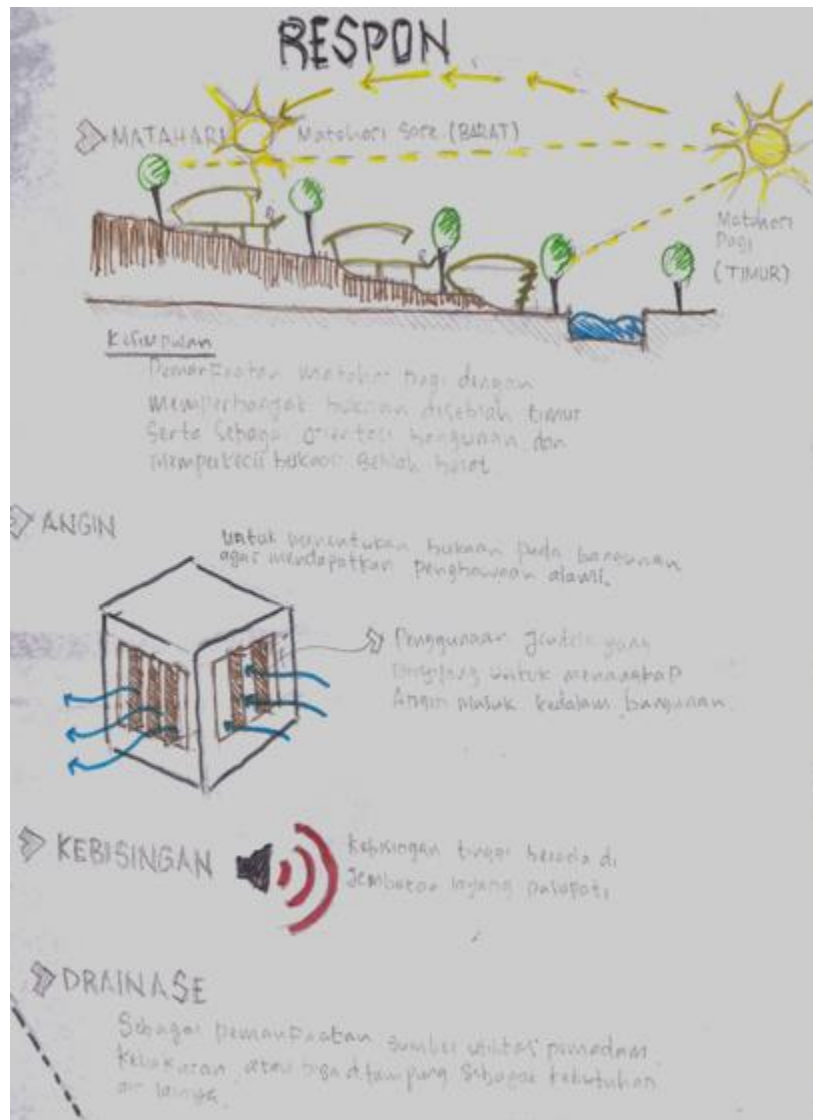 RESPON
MATAHARI
Matahari Sore (BARAT)
Matahari
Pagi
(TIMUR)
Kesimpulan
Pemanfaatan matahari pagi dengan
memperbanyak bukaan disebelah timur
Serta Sebagai Orientasi bangunan dan
memperkecil bukaan Sebelah barat.
ANGIN
untuk menentukan bukaan pada bangunan
agar mendapatkan penghawaan alami.
Penggunaan jendela yang
untuk menangkap
Angin masuk kedalam bangunan.
KEBISINGAN
Kebisingan tinggi berada di
Jembatan layang pasopati
DRAINASE
Sebagai pemanfaatan sumber utilitas pemadam
Kebakaran atau bisa ditampung sebagai kebutuhan
air lainya.